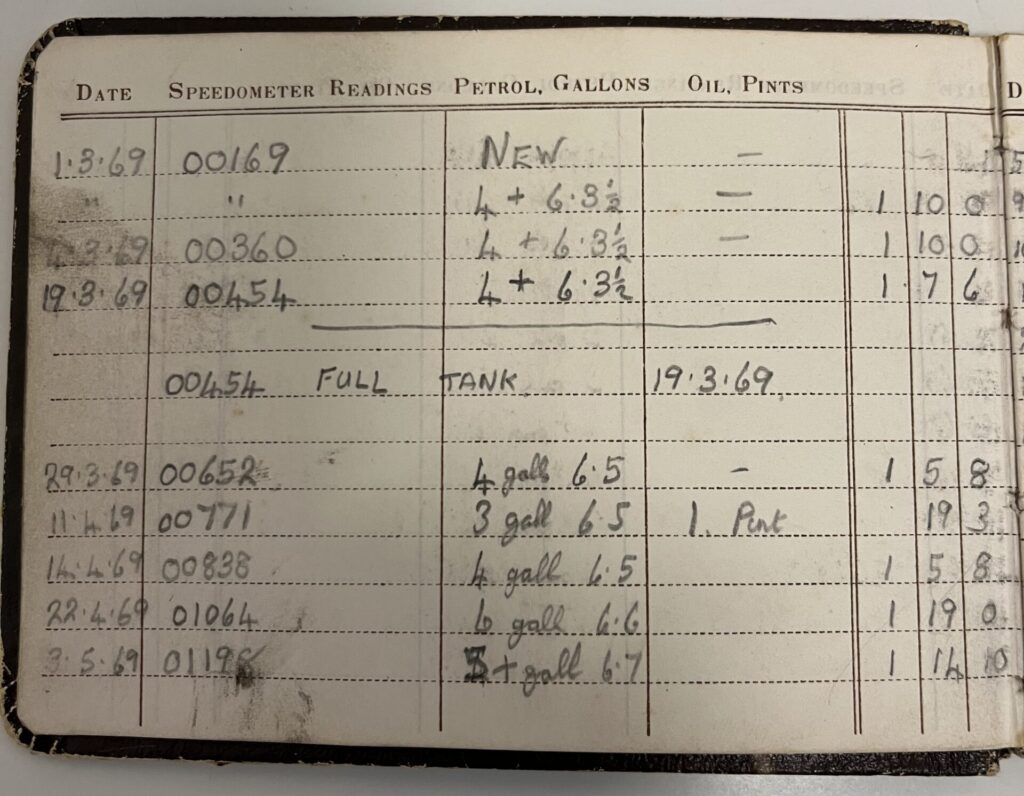 DATE SPEEDOMETER READINGS PETROL, GALLONS OIL, PINTS D
1·3·69 00169 NEW — 5
" " 4 + 6·3½ — 1 10 0 9
4·3·69 00360 4 + 6·3½ — 1 10 0
19·3·69 00454 4 + 6·3½ 1 · 7 6
00454 FULL TANK 19·3·69
29·3·69 00652 4 gall 6·5 - 1 5 8
11·4·69 00771 3 gall 6·5 1. Pint 19 3
14·4·69 00838 4 gall 6·5 1 5 8
22·4·69 01064 6 gall 6·6 1 19 0
3·5·69 01198 5+ gall 6·7 1 14 10